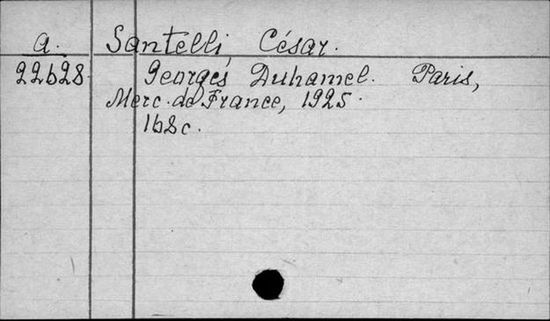 a. Santelli, César.
22628. Georges Duhamel. Paris,
Merc. de France, 1925.
168c.